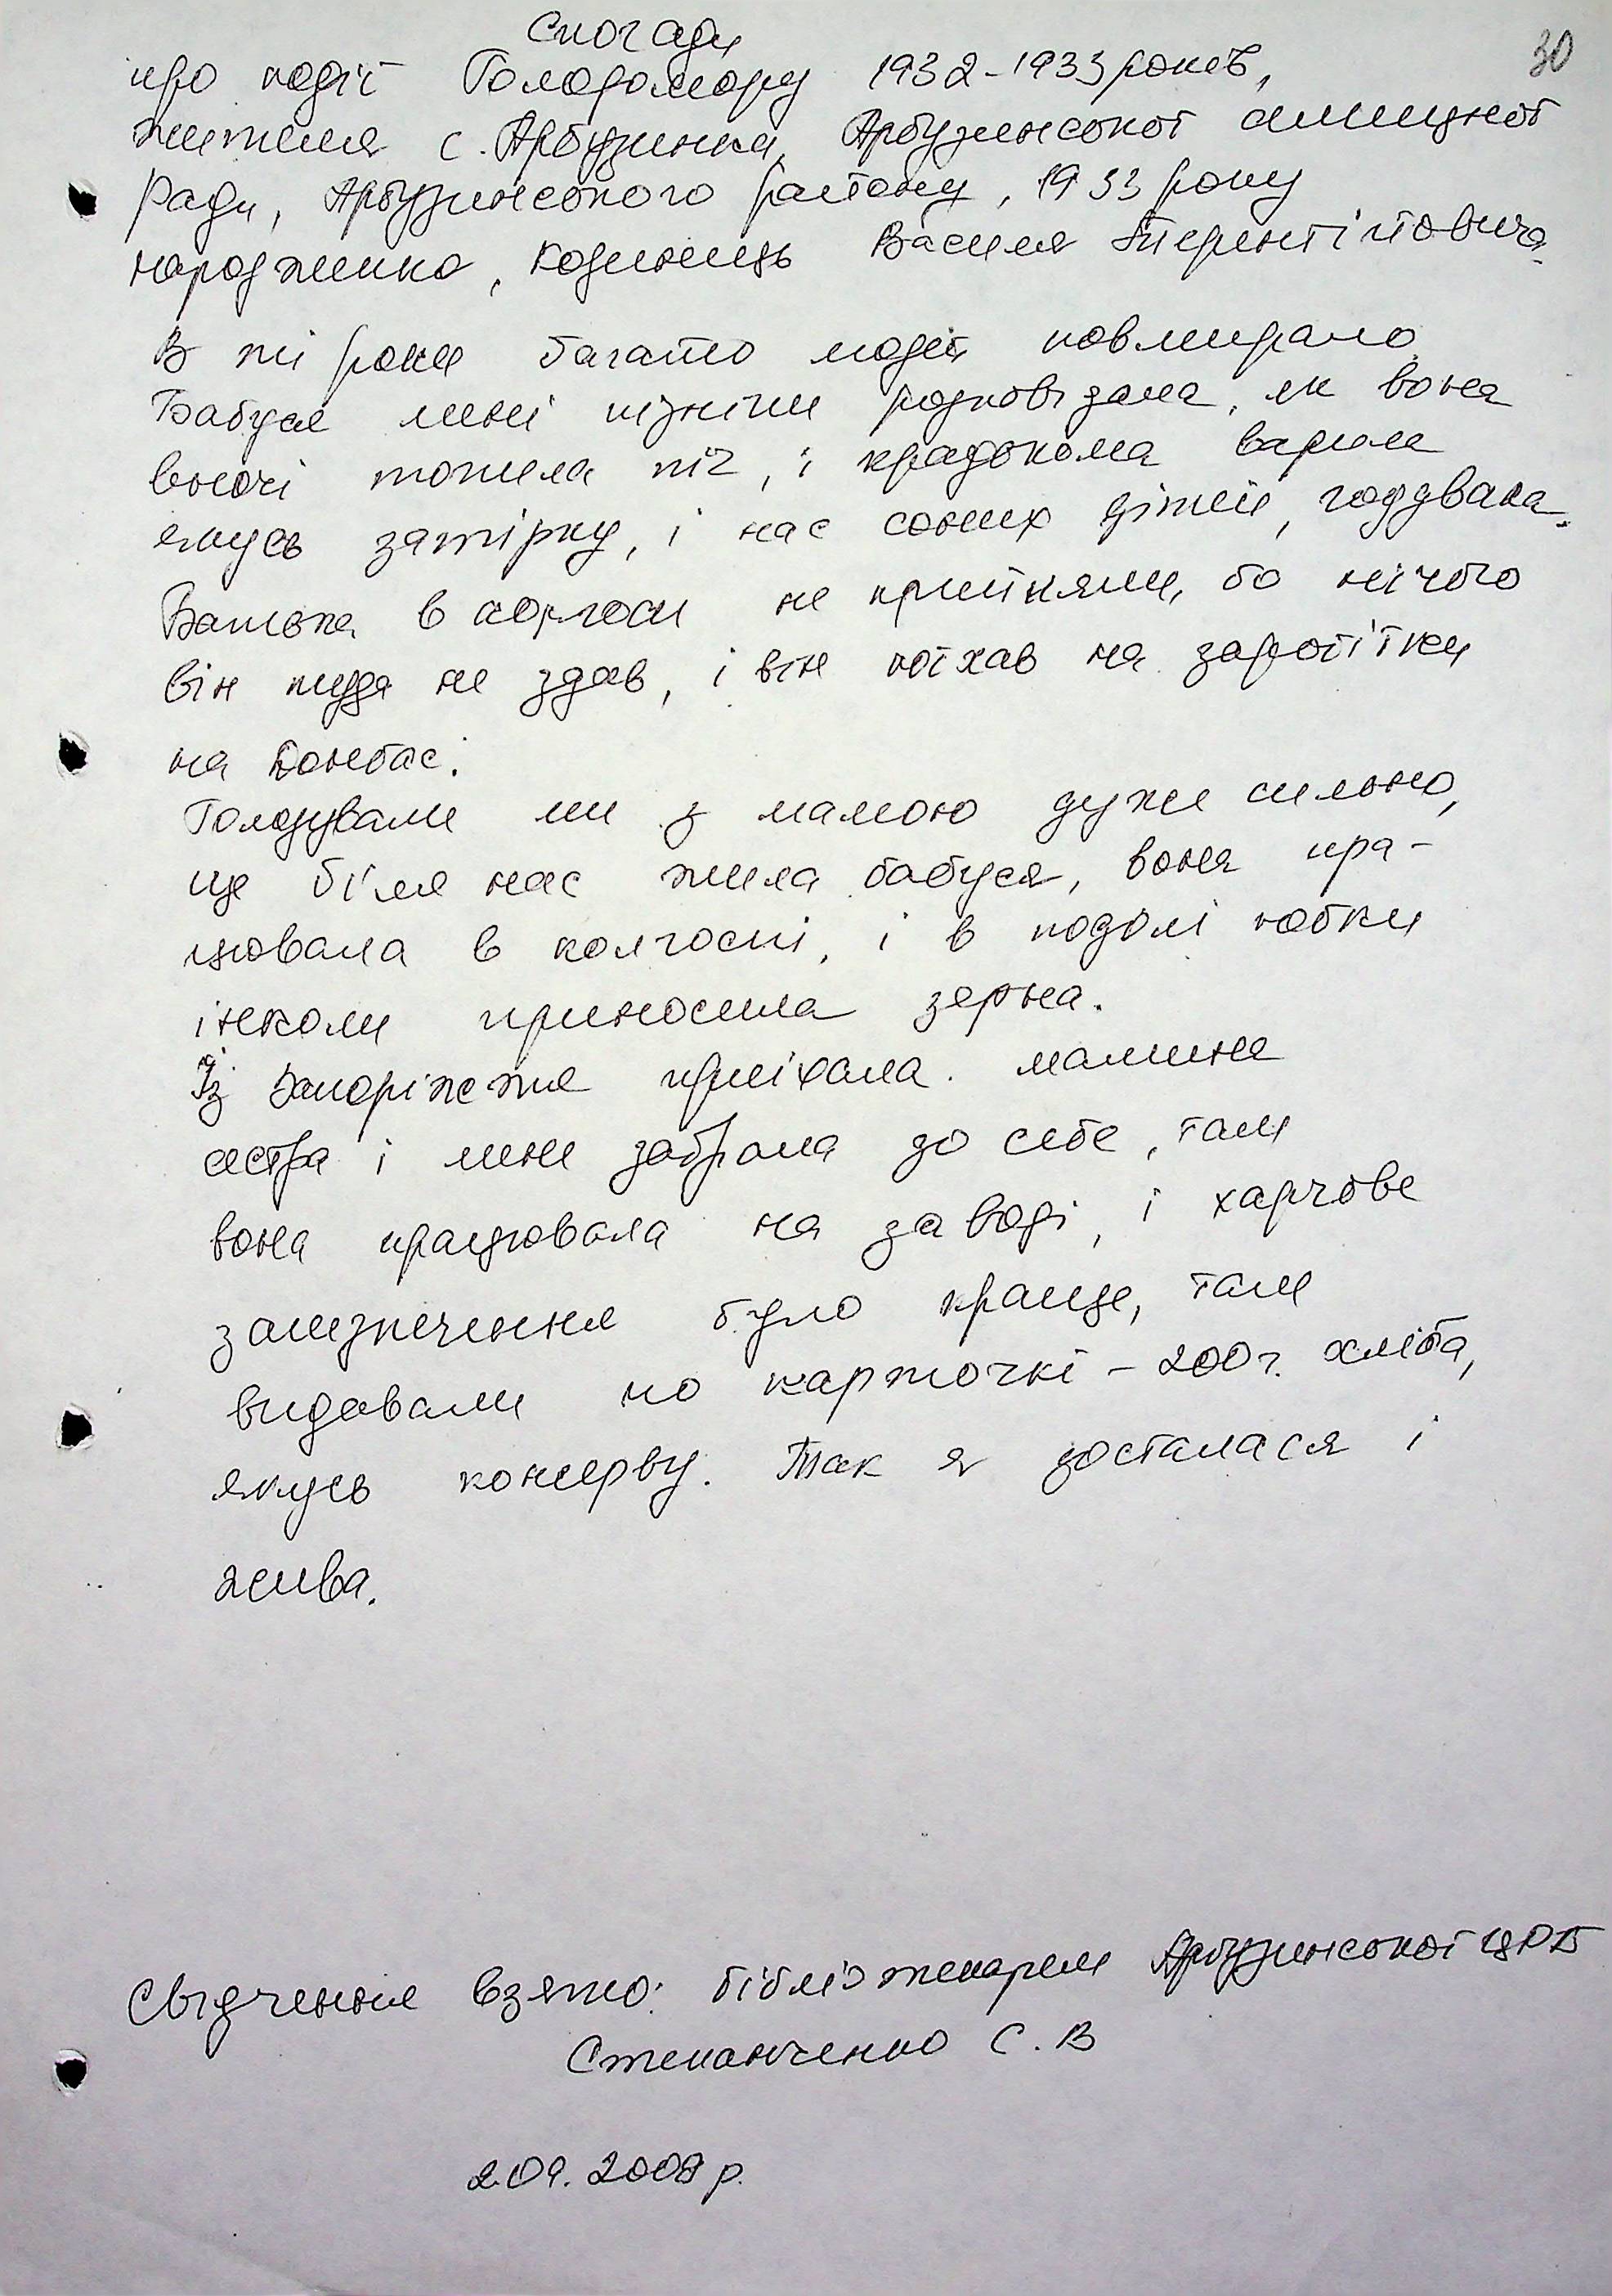 Спогади
30
про події Голодомору 1932-1933 років,
жителя с. Арбузинка, Арбузинської селищної
ради, Арбузинського району, 1933 року
народження, Кодинець Василя Терентійовича.
В ті роки багато людей повмирало.
Бабуся мені пізніше розповідала, як вона
вночі топила піч, і крадькома варила
якусь затірку, і нас сонних дітей, годувала.
Батька в колгосп не прийняли, бо нічого
він туда не здав, і він поїхав на заробітки
на Донбас.
Голодували ми з мамою дуже сильно,
ще біля нас жила бабуся, вона пра-
цювала в колгоспі, і в подолі юбки
інколи приносила зерна.
Із Запоріжжя приїхала мамина
сестра і мене забрала до себе, там
вона працювала на заводі, і харчове
забезпечення було краще, там
видавали по карточкі - 200 г. хліба,
якусь консерву. Так я зосталася і
жива.
Свідчення взято: бібліотекарем Арбузинської ЦРБ
Степанченко С. В
2.09.2008 р.